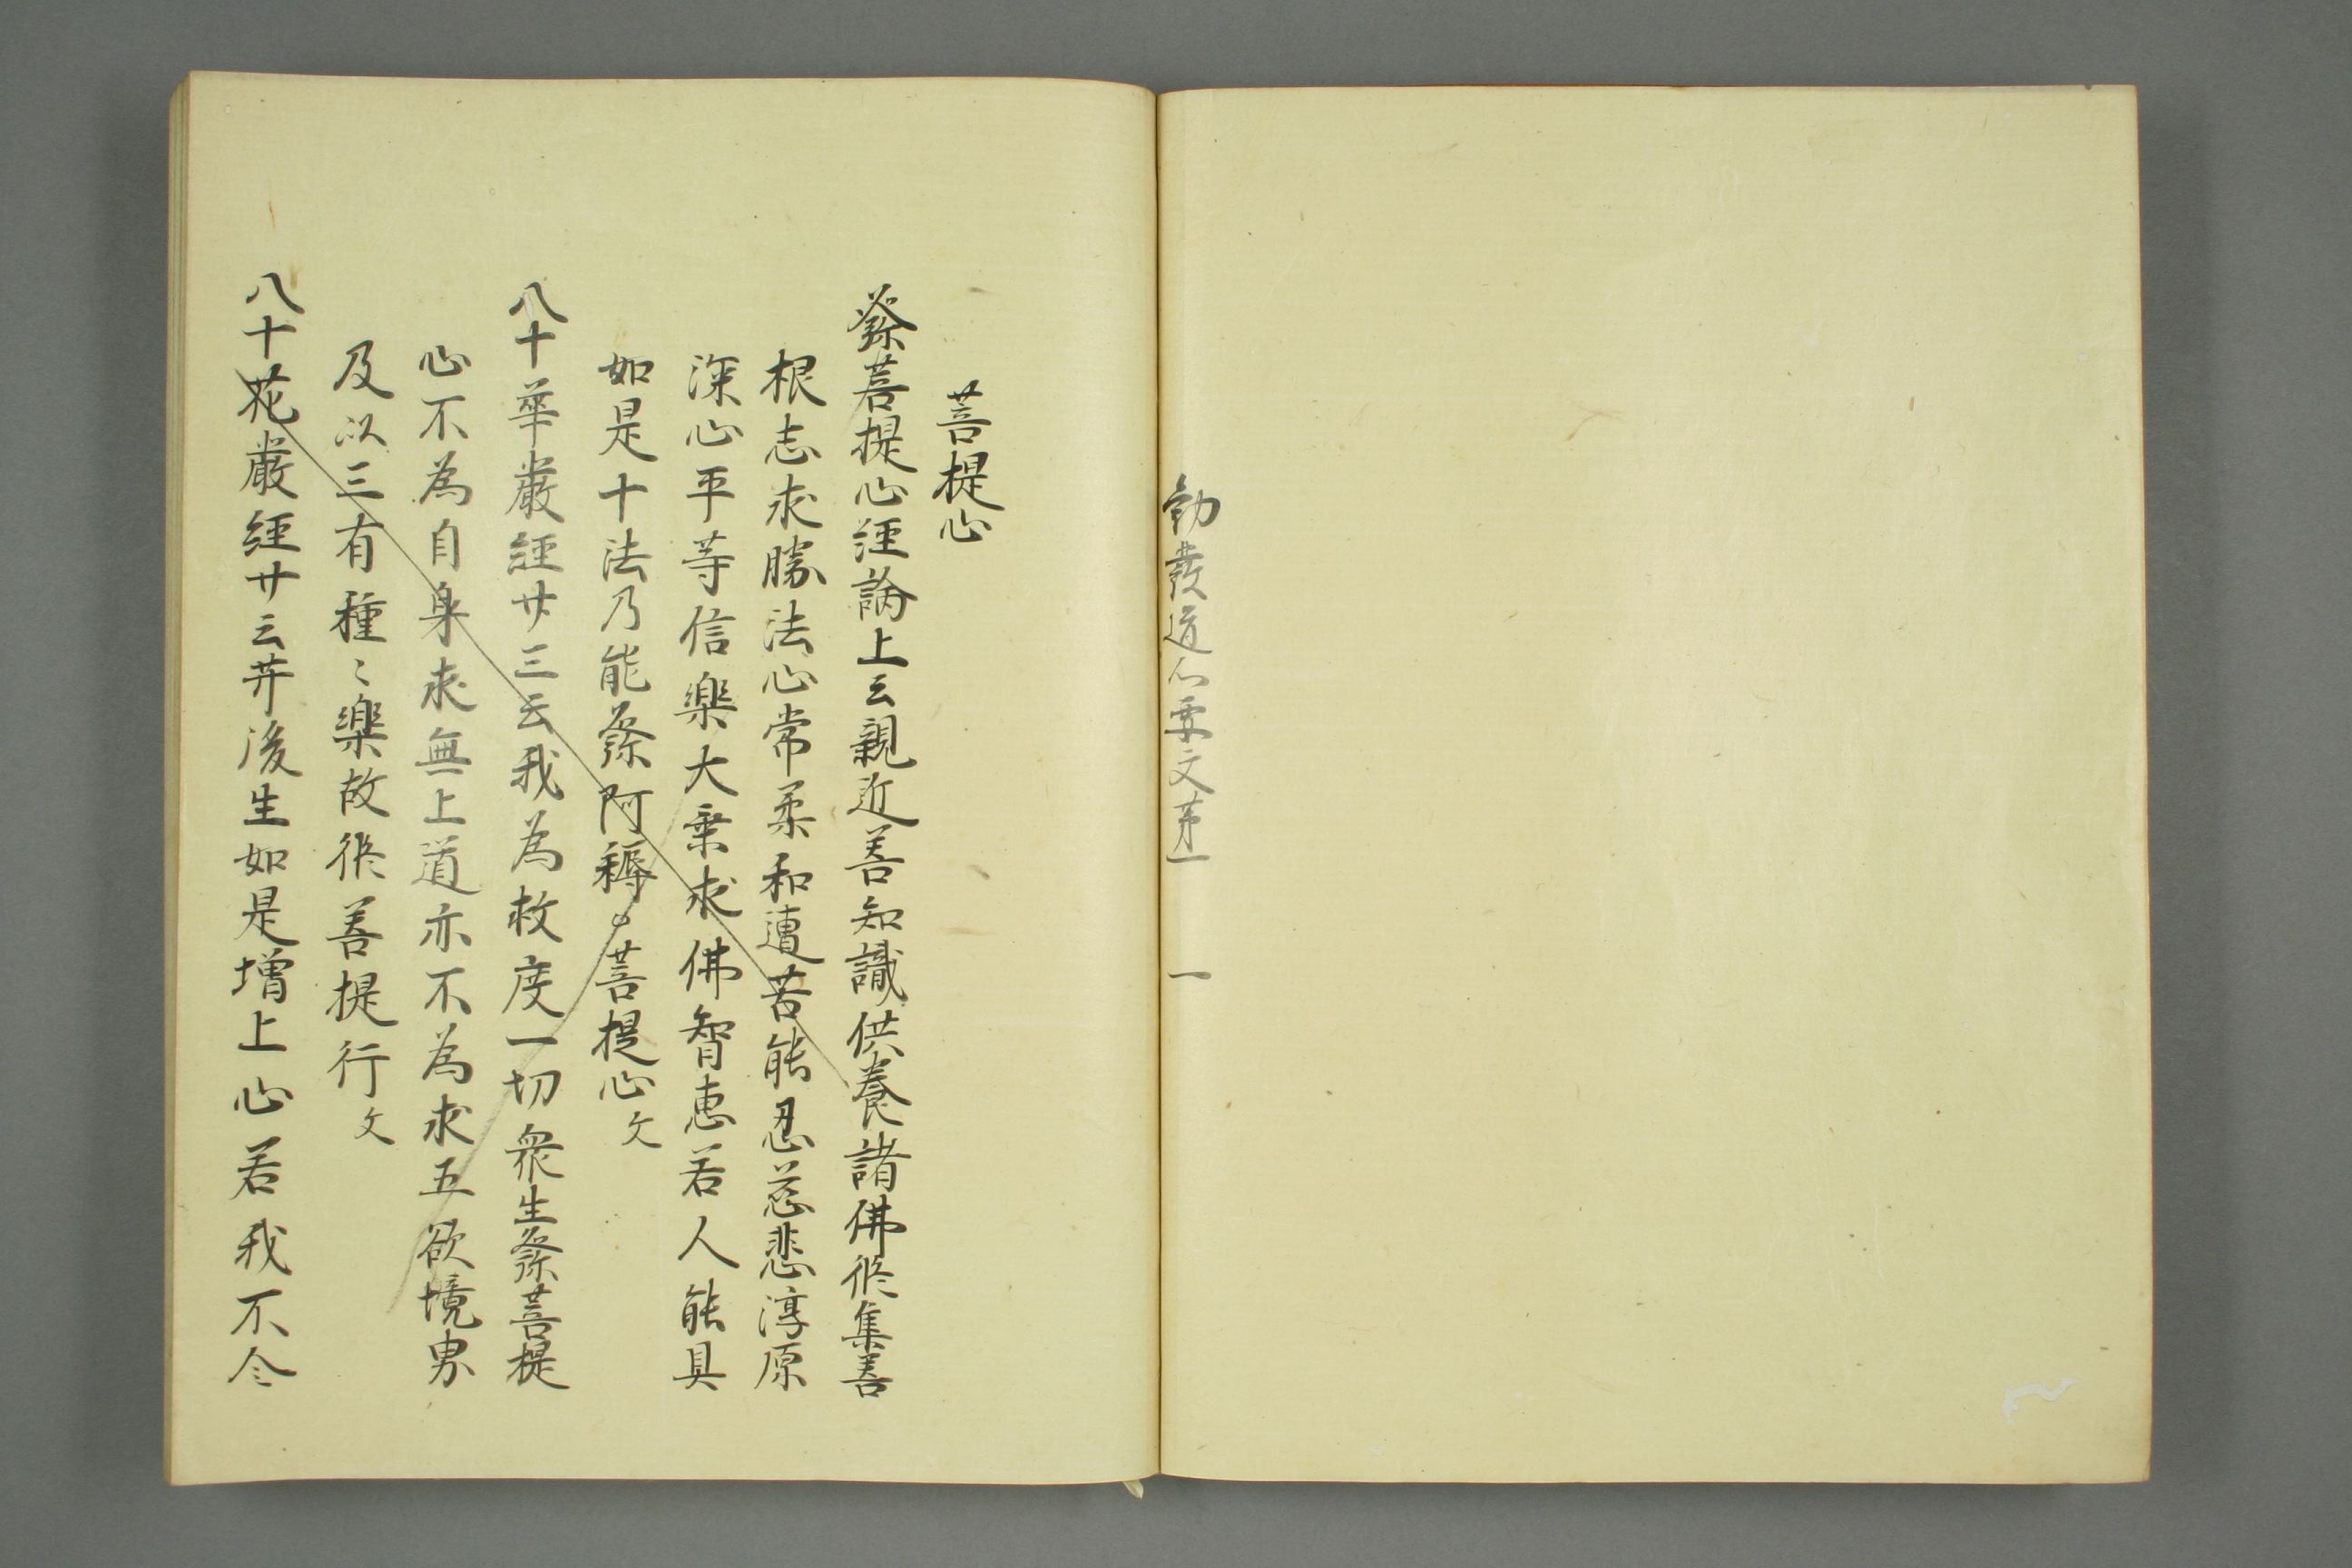 勸發道心要文第一　　一
菩提心
發菩提心経論上云親近善知識供養諸佛修集善
根志求勝法心常柔和遭苦能忍慈悲淳原
深心平等信樂大乗求佛智恵若人能具
如是十法乃能發阿耨。菩提心文
八十華嚴経廿三云我為救度一切衆生發菩提
心不為自身求無上道亦不為求五欲境界
及以三有種〻樂故修菩提行文
八十花嚴経廿云菩後生如是増上心若我不令